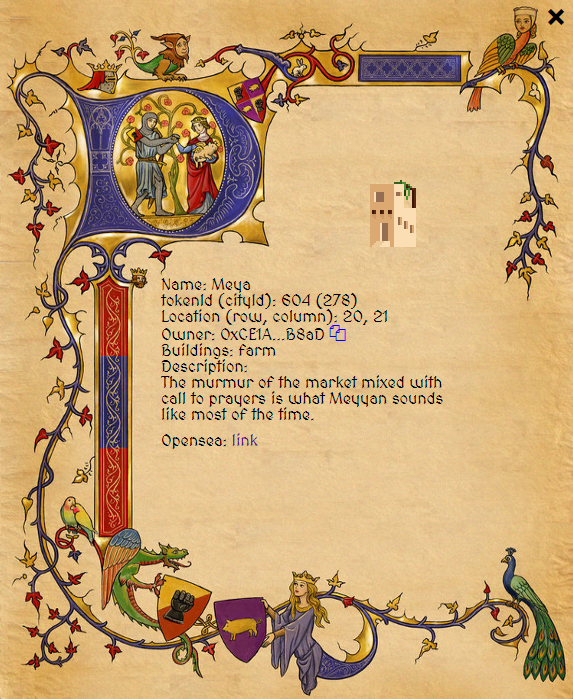 Name: Meya
tokenId (cityId): 604 (278)
Location (row, column): 20, 21
Owner: 0xCE1A...B8aD
Buildings: farm
Description:
The murmur of the market mixed with
call to prayers is what Meyyan sounds
like most of the time.
Opensea: link